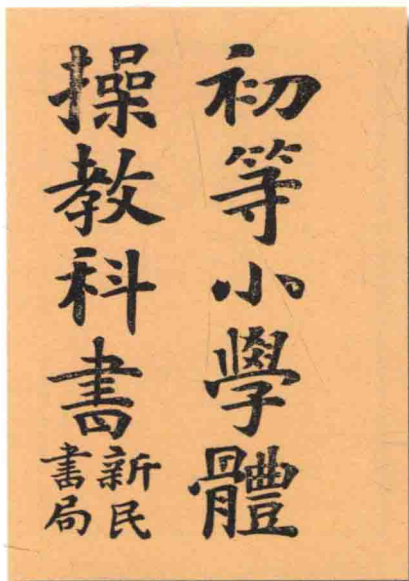 初等小學體
操教科書
新民
書局